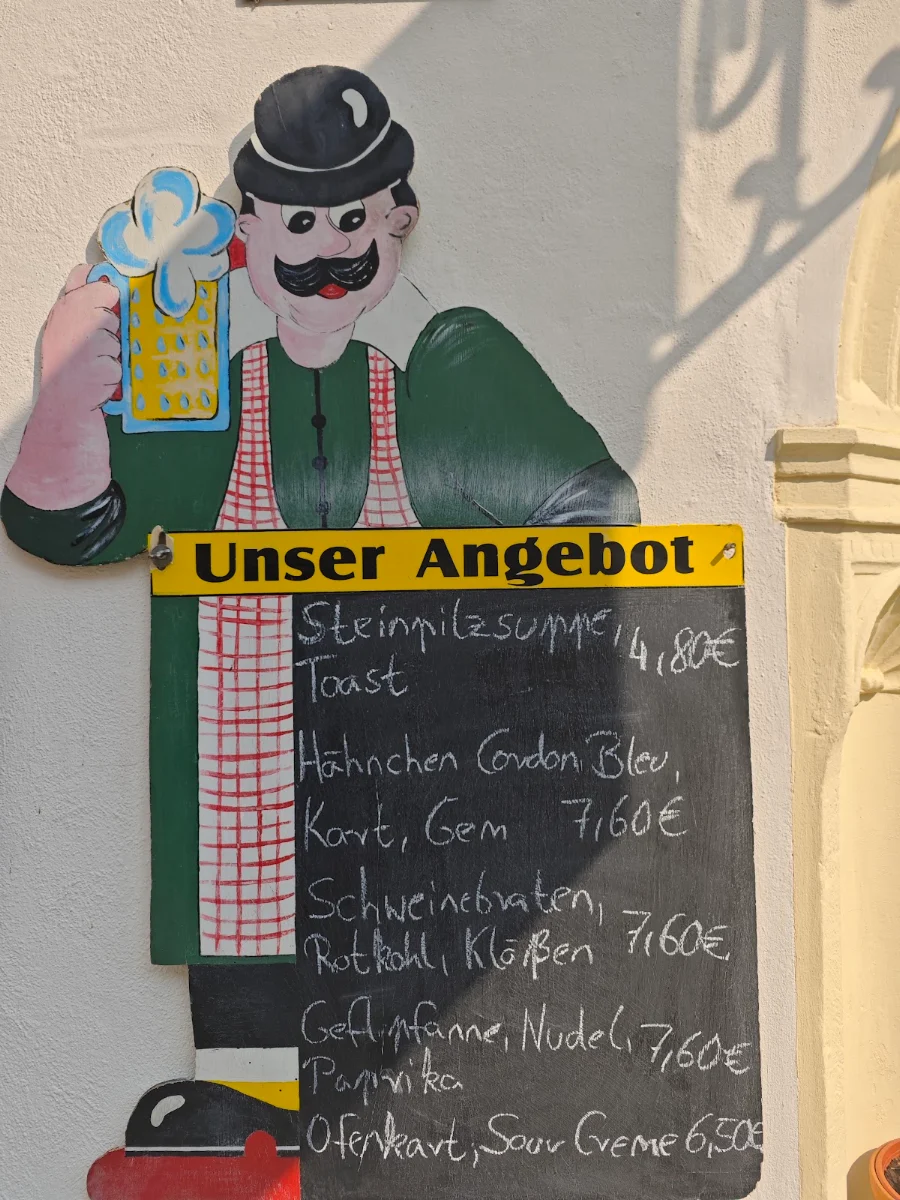 Unser Angebot
Steinpilzsuppe,
Toast 4,80€
Hähnchen Cordon Bleu,
Kart, Gem 7,60€
Schweinebraten,
Rotkohl, Klößen 7,60€
Gefl.pfanne, Nudel,
Paprika 7,60€
Ofenkart, Sour Creme 6,50€